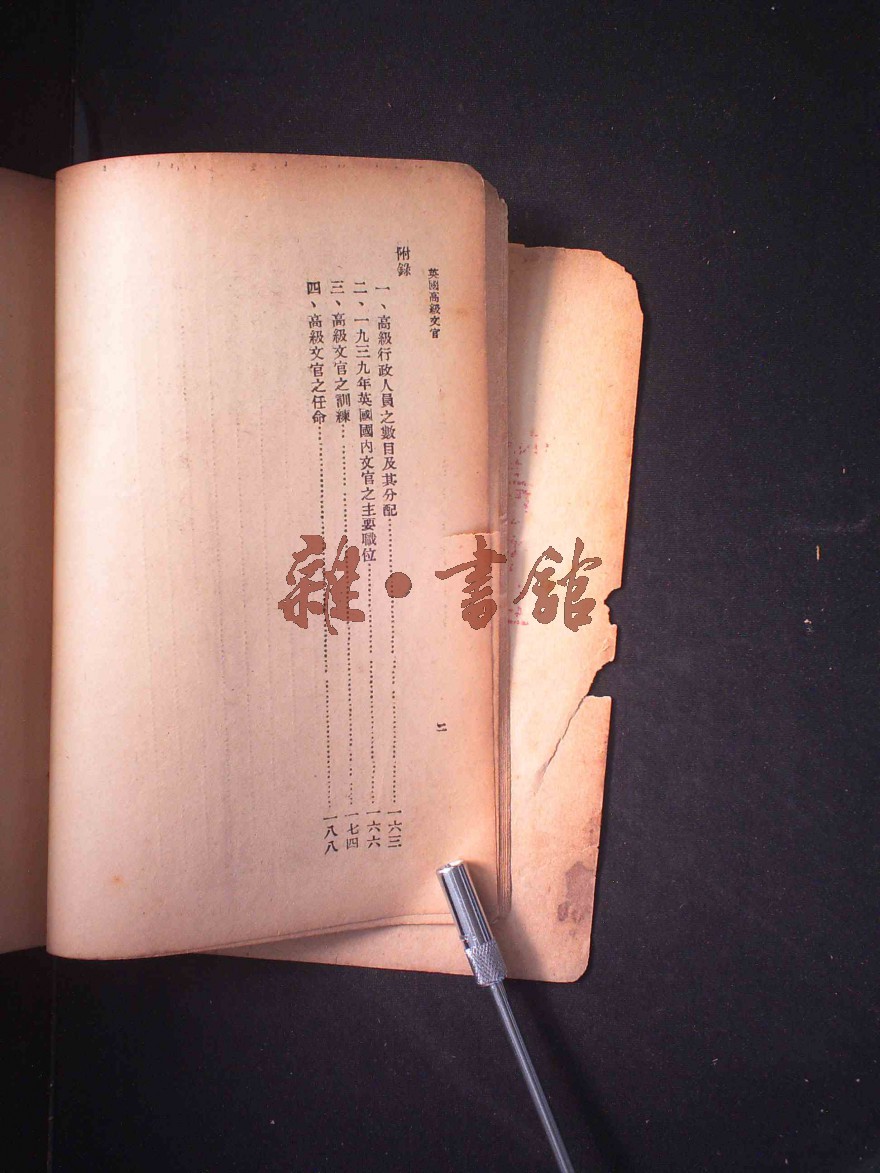 英國高級文官
二
附錄
一、高級行政人員之數目及其分配……一六三
二、一九三九年英國國內文官之主要職位……一六六
三、高級文官之訓練……一七四
四、高級文官之任命……一八八
雜·書館